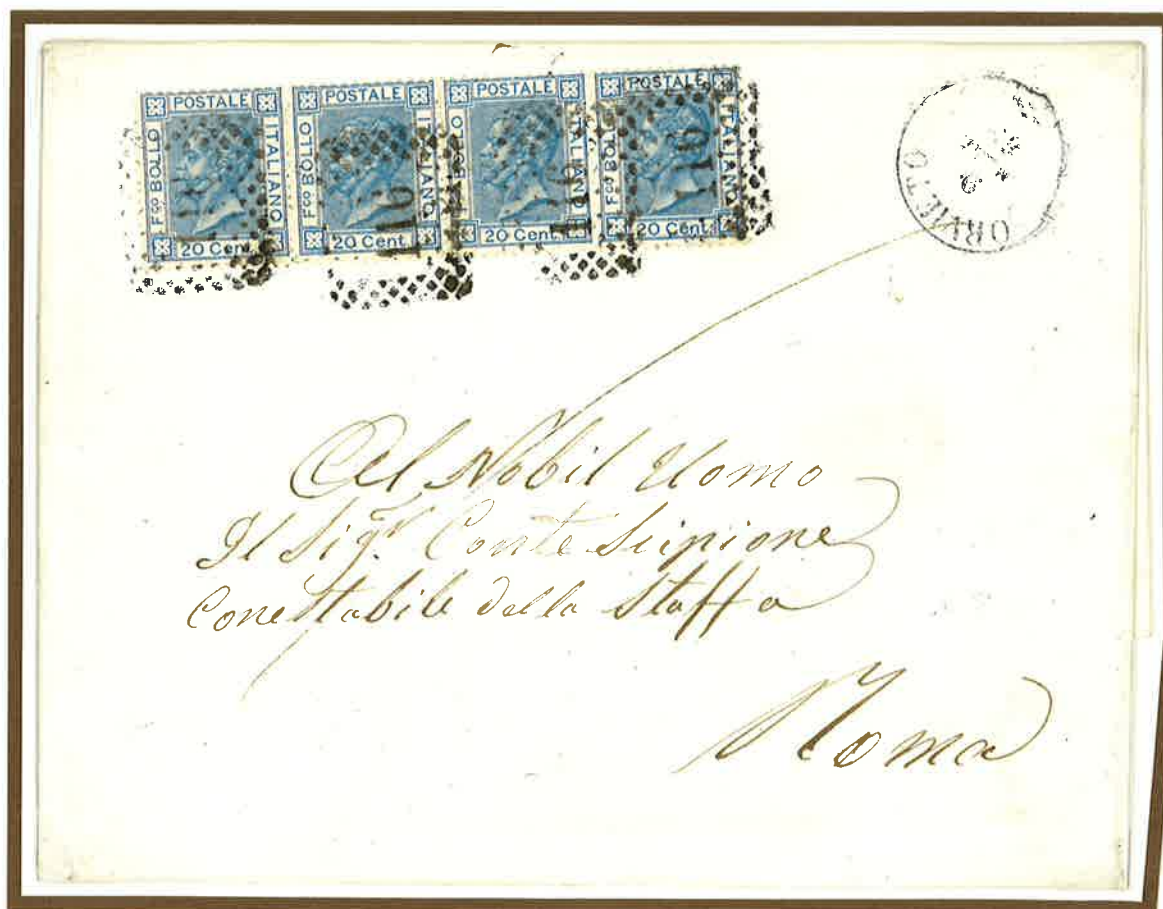 POSTALE
Fco BOLLO
ITALIANO
20 Cent.
POSTALE
Fco BOLLO
ITALIANO
20 Cent.
116
POSTALE
Fco BOLLO
ITALIANO
20 Cent.
POSTALE
Fco BOLLO
ITALIANO
20 Cent.
ORVIETO
Al Nobil Uomo
Il Sigr Conte Scipione
Conestabile della Staffa
Roma